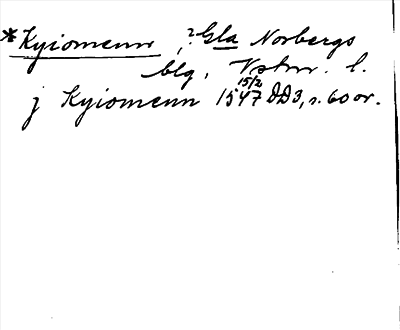 *Kyiomenn, ? Gla Norbergs
blg, Vstm. l.
j Kyiomenn 1547 15/2 DD3, s. 60 or.